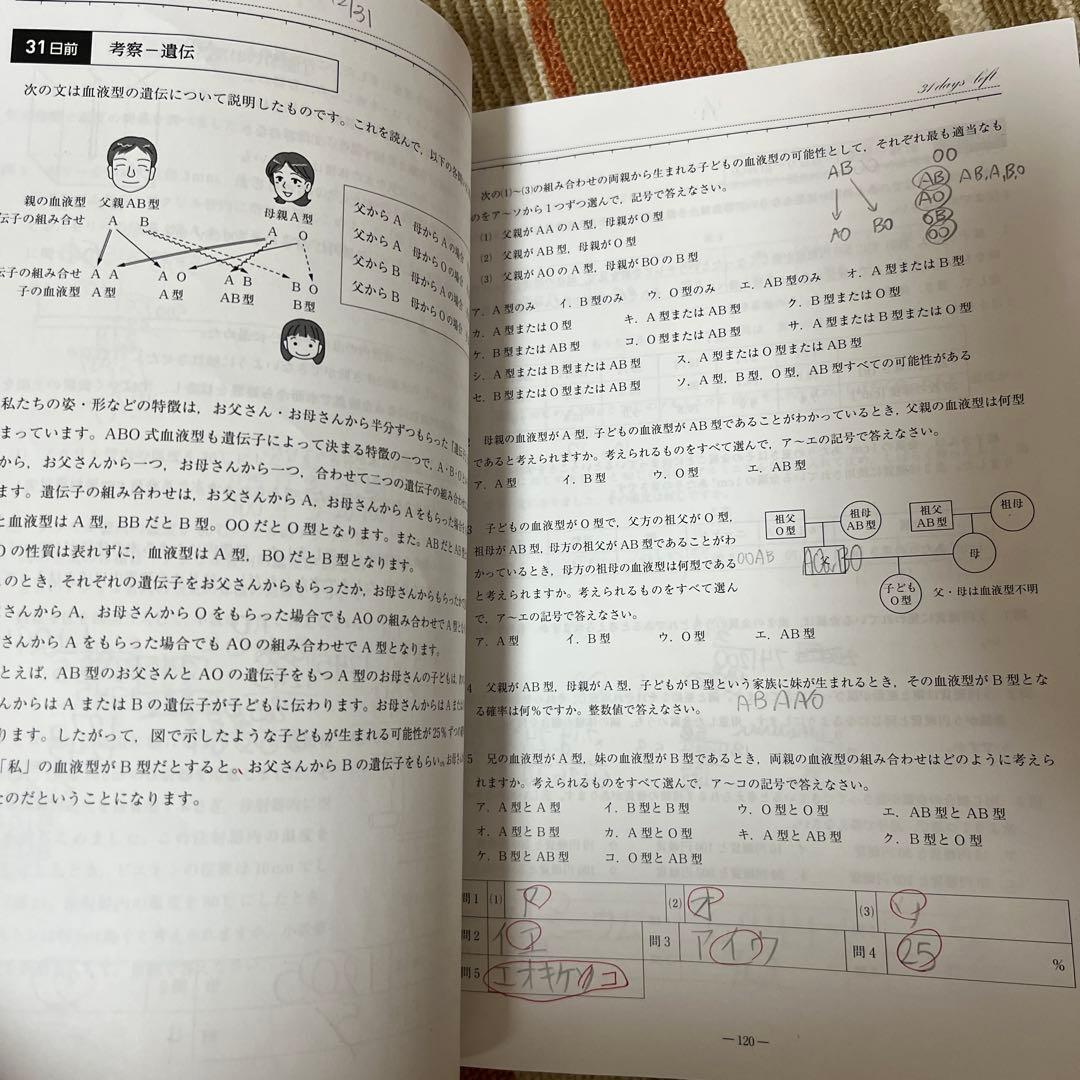 12/31
31日前 考察－遺伝
次の文は血液型の遺伝について説明したものです。これを読んで，以下の各問
親の血液型 父親AB型
母親A型
伝子の組み合せ A B
A O
子の組み合せ A A A O A B B O
子の血液型 A型 A型 AB型 B型
父からA 母からAの場合
父からA 母からOの場合
父からB 母からAの場合
父からB 母からOの場合
私たちの姿・形などの特徴は，お父さん・お母さんから半分ずつもらった「遺伝
まっています。ABO式血液型も遺伝子によって決まる特徴の一つで，A・B・O
から，お父さんから一つ，お母さんから一つ，合わせて二つの遺伝子の組み合わせ
ます。遺伝子の組み合わせは，お父さんからA，お母さんからAをもらった場合
と血液型はA型，BBだとB型。OOだとO型となります。また。ABだとAB
Oの性質は表れずに，血液型はA型，BOだとB型となります。
このとき，それぞれの遺伝子をお父さんからもらったか，お母さんからもらったか
さんからA，お母さんからOをもらった場合でもAOの組み合わせでA型と
さんからAをもらった場合でもAOの組み合わせでA型となります。
とえば，AB型のお父さんとAOの遺伝子をもつA型のお母さんの子どもは，
んからはAまたはBの遺伝子が子どもに伝わります。お母さんからはAまたは
ります。したがって，図で示したような子どもが生まれる可能性が25%ずつ
「私」の血液型がB型だとすると，お父さんからBの遺伝子をもらい，お母さ
たのだということになります。
31 days left
次の(1)~(3)の組み合わせの両親から生まれる子どもの血液型の可能性として，それぞれ最も適当なも
のをア～ソから1つずつ選んで，記号で答えなさい。
(1) 父親がAAのA型，母親がO型
(2) 父親がAB型，母親がO型
(3) 父親がAOのA型，母親がBOのB型
AB
AO BO
OO
AB AB,A,B,O
AO
OB
OO
ア．A型のみ イ．B型のみ ウ．O型のみ エ．AB型のみ オ．A型またはB型
カ．A型またはO型 キ．A型またはAB型 ク．B型またはO型
ケ．B型またはAB型 コ．O型またはAB型 サ．A型またはB型またはO型
シ．A型またはB型またはAB型 ス．A型またはO型またはAB型
セ．B型またはO型またはAB型 ソ．A型，B型，O型，AB型すべての可能性がある
2 母親の血液型がA型，子どもの血液型がAB型であることがわかっているとき，父親の血液型は何型
であると考えられますか。考えられるものをすべて選んで，ア～エの記号で答えなさい。
ア．A型 イ．B型 ウ．O型 エ．AB型
3 子どもの血液型がO型で，父方の祖父がO型，
祖母がAB型，母方の祖父がAB型であることがわ
かっているとき，母方の祖母の血液型は何型である
と考えられますか。考えられるものをすべて選ん
で，ア～エの記号で答えなさい。
ア．A型 イ．B型 ウ．O型 エ．AB型
祖父 O型
祖母 AB型
祖父 AB型
祖母
OOAB
BO
母
子ども O型
父・母は血液型不明
4 父親がAB型，母親がA型，子どもがB型という家族に妹が生まれるとき，その血液型がB型とな
る確率は何%ですか。整数値で答えなさい。
5 兄の血液型がA型，妹の血液型がB型であるとき，両親の血液型の組み合わせはどのように考えら
れますか。考えられるものをすべて選んで，ア～コの記号で答えなさい。
ア．A型とA型 イ．B型とB型 ウ．O型とO型 エ．AB型とAB型
オ．A型とB型 カ．A型とO型 キ．A型とAB型 ク．B型とO型
ケ．B型とAB型 コ．O型とAB型
問1 (1) ア (2) オ (3) ソ
問2 イエ 問3 アイウ 問4 25 %
問5 エオキケコ
—120—